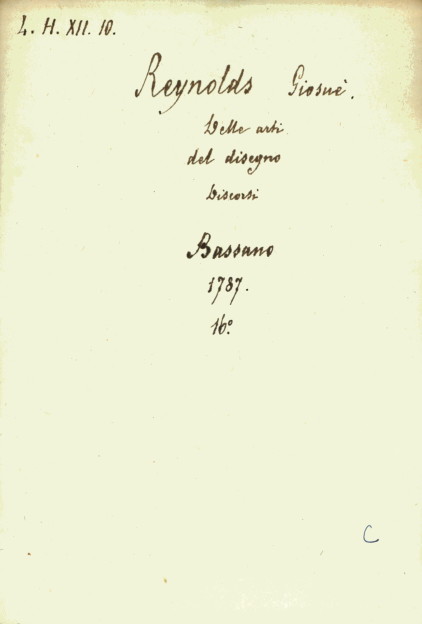 L. H. XII. 10.
Reynolds Giosuè.
Delle arti
del disegno
Discorsi
Bassano
1787.
16°.
C